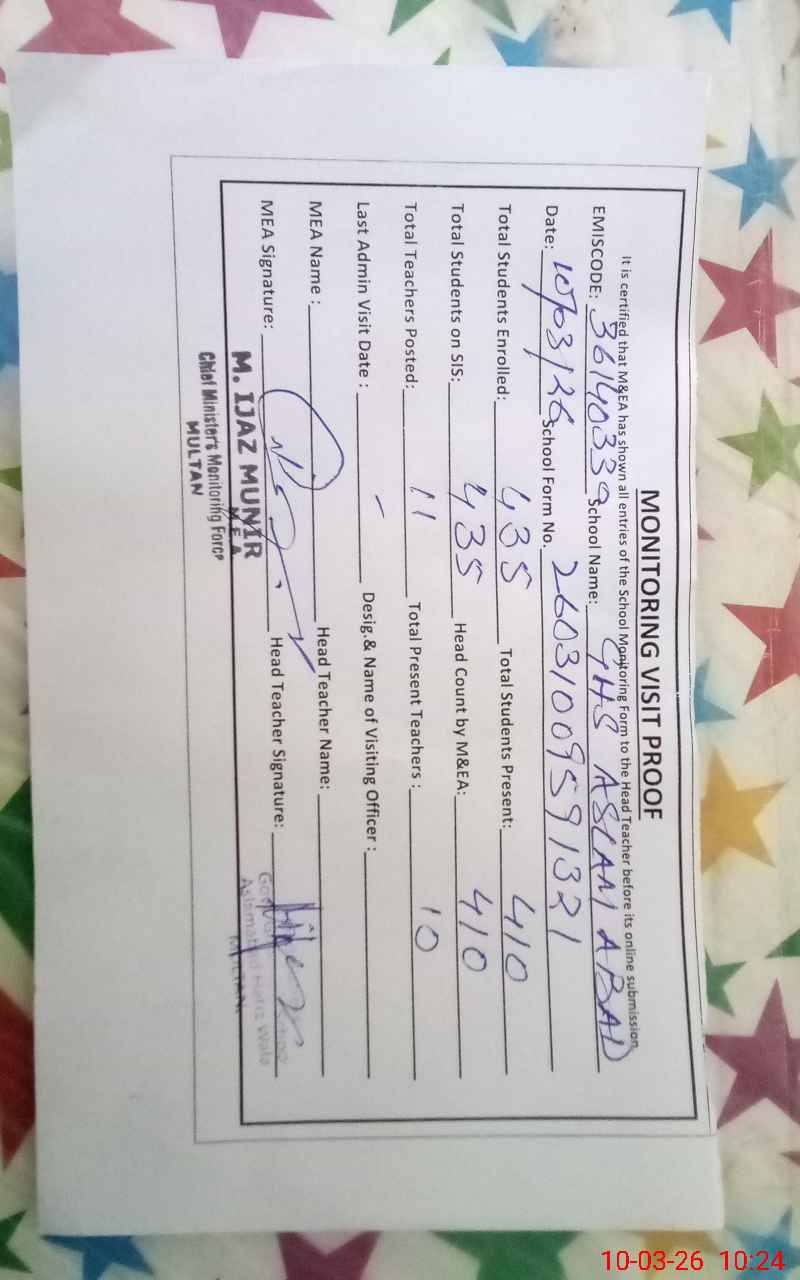 MONITORING VISIT PROOF
It is certified that M&EA has shown all entries of the School Monitoring Form to the Head Teacher before its online submission.
EMISCODE: 36140339 School Name: GHS ASLAM ABAD
Date: 10/03/26 School Form No. 26031009591321
Total Students Enrolled: 435 Total Students Present: 410
Total Students on SIS: 435 Head Count by M&EA: 410
Total Teachers Posted: 11 Total Present Teachers : 10
Last Admin Visit Date : - Desig.& Name of Visiting Officer :
MEA Name : Head Teacher Name:
MEA Signature: Head Teacher Signature:
M. IJAZ MUNIR
M.E.A
Chief Minister's Monitoring Force
MULTAN
Wala
MULTAN
10-03-26 10:24